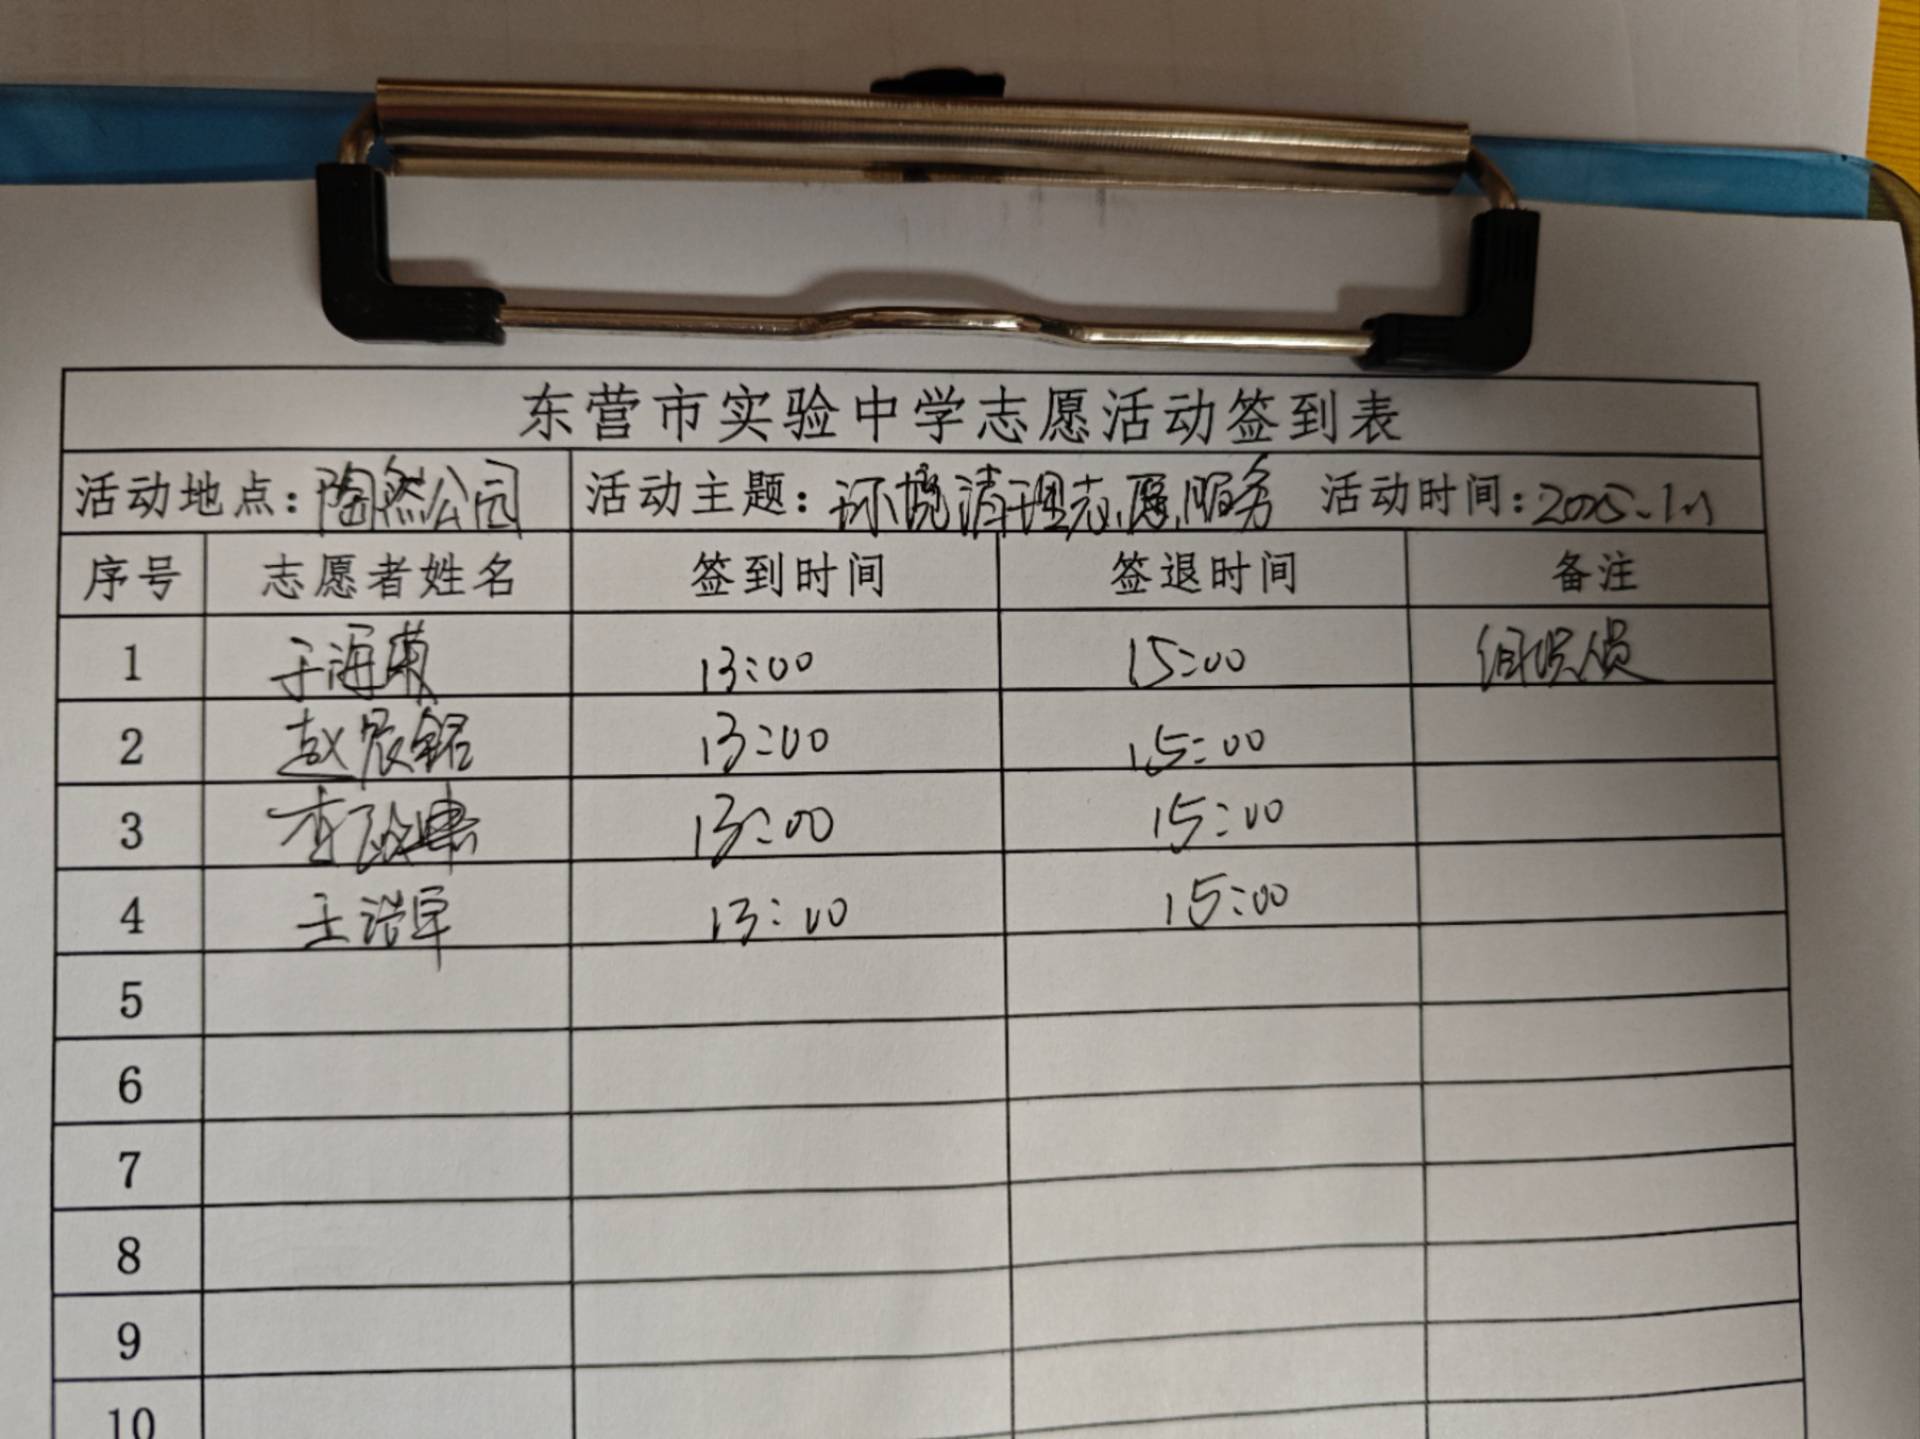 东营市实验中学志愿活动签到表
活动地点：陶然公园 活动主题：环境清理志愿服务 活动时间：2025.1.1
序号 志愿者姓名 签到时间 签退时间 备注
1 于海菊 13:00 15:00 组织员
2 赵宸铭 13:00 15:00
3 李 13:00 15:00
4 王浩宇 13:00 15:00
5
6
7
8
9
10